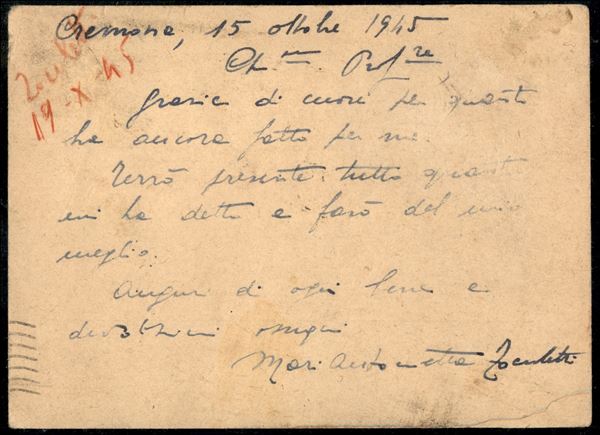 Cremona, 15 ottobre 1945
Ch.mo Prof.re,
Grazie di cuore per quanto
ha ancora fatto per me.
Terrò presente tutto quanto
mi ha detto e farò del mio
meglio.
Auguri di ogni bene e
devotissimi ossequi
Mariantonietta
19-X-45